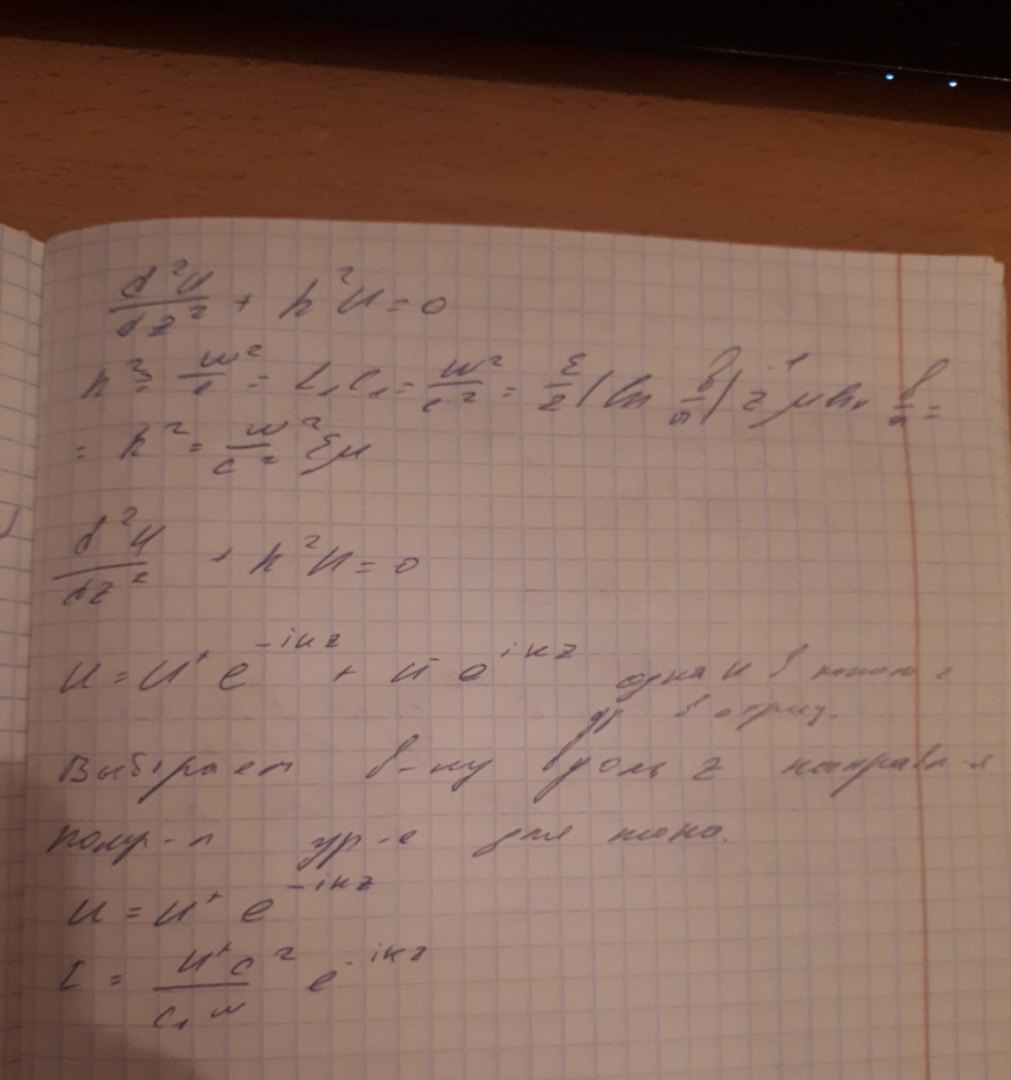 d²U/dz² + k²U = 0
k² = w²/c = L₁C₁ = w²/c² = ε/2 (ln b/a)⁻¹ 2 μ ln b/a =
= k² = w²/c² εμ
d²U/dz² + k²U = 0
U = U⁺ e^(-ikz) + U⁻ e^(ikz) одна
в отриц.
Выбираем в-ну вдоль z направл-я
Получ-м ур-е для тока.
U = U⁺ e^(-ikz)
I = U⁺c²/(c₁ w) e^(-ikz)